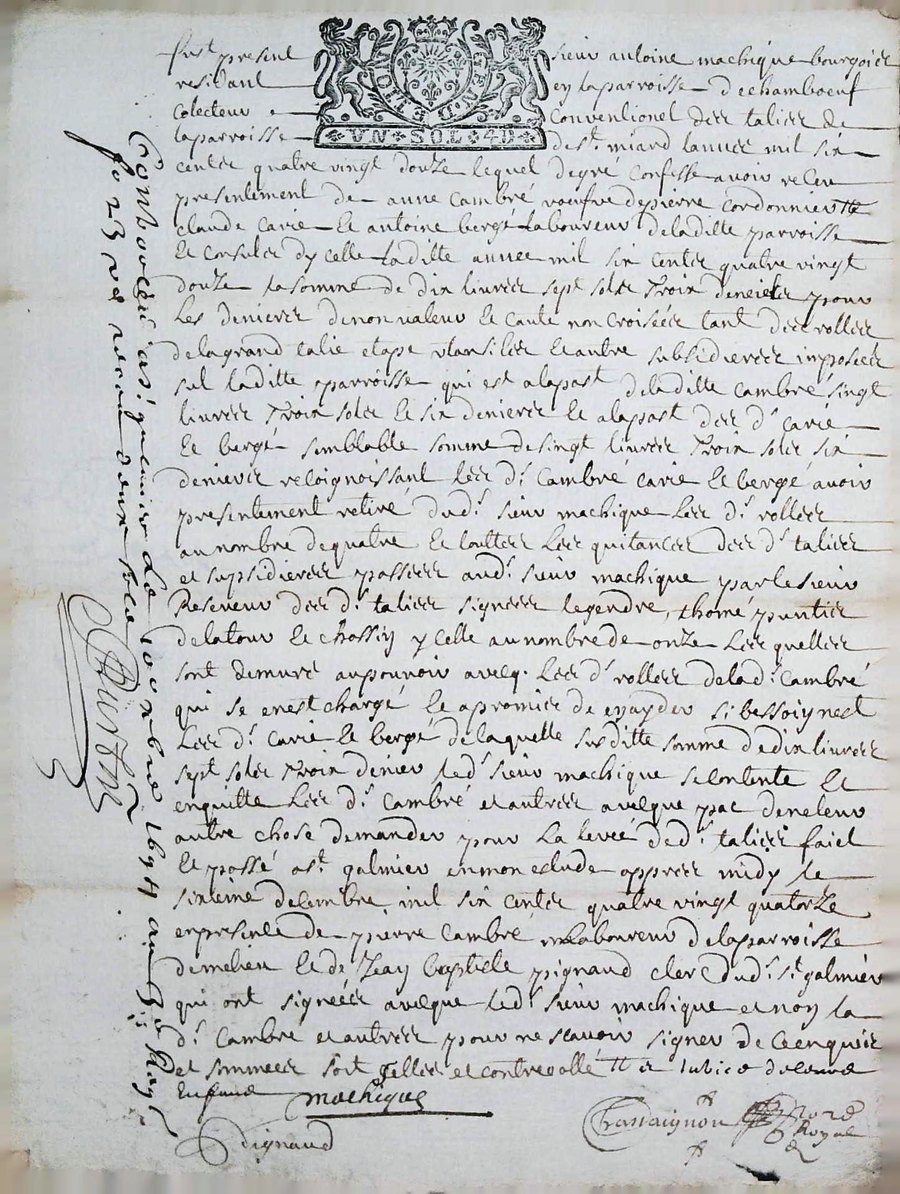 fust present sieur antoine machique bourgoier
residant en la parroisse de chamboeuf
colecteur conventionel deer talier de
la parroisse de st miard lannee mil six
centz quatre vingt douze lequel de gré confesse avoir receu
presentement de anne Cambré voefve de pierre Cordonnier
claude carie et antoine bergé laboureur de laditte parroisse
et consulz dycelle laditte annee mil six centz quatre vingt
douze la somme de dix livres sept solz troix deniers pour
les deniers de non valeur et cautte non croisées tant des rolles
de la grand talie etape utansilles et autre subsidieres imposées
sul laditte parroisse qui est a la part de laditte Cambré singt
livres troix solz et six deniers et a la part des dt carie
et bergé semblable somme de singt livres troix solz six
deniers recoignoissant les dt Cambré carie et bergé avoir
presentement retiré dudt sieur machique les dt rolles
au nombre de quatre et touttes les quitances des dt talies
et supsidieres passées audt sieur machique par le sieur
Reseveur des dt talies signées legendre, thomé puntis
delatour et chossin ycelle au nombre de onze les quelles
sont demuré au pouvoir avecq les dt rolles de la dt Cambré
qui se en est chargé et a promis de en ayder si bessoignest
les dt carie et bergé de laquelle susditte somme de dix livres
sept solz troix denier ledt sieur machique se contente et
en quitte les dt Cambré et autres avecque pac de ne leur
autre chose demander pour la levée dedt talies faict
et passé a st galmier en mon estude appres midy le
sixieme decembre mil six centz quatre vingt quatorze
en presence de pierre Cambré laboureur de la parroisse
de melieu et de Jean baptiste pignaud clerc dudt st galmier
qui ont signées avecque ledt sieur machique et non la
dt Cambré et autres pour ne scavoir signer de ce enquis
et sommes soit sellée et contrerollé
machique
Pignaud
Chastaignon nore Royal
Controllé a st galmier le 10 xbre 1694 au
fo 23 vo receu deux solz